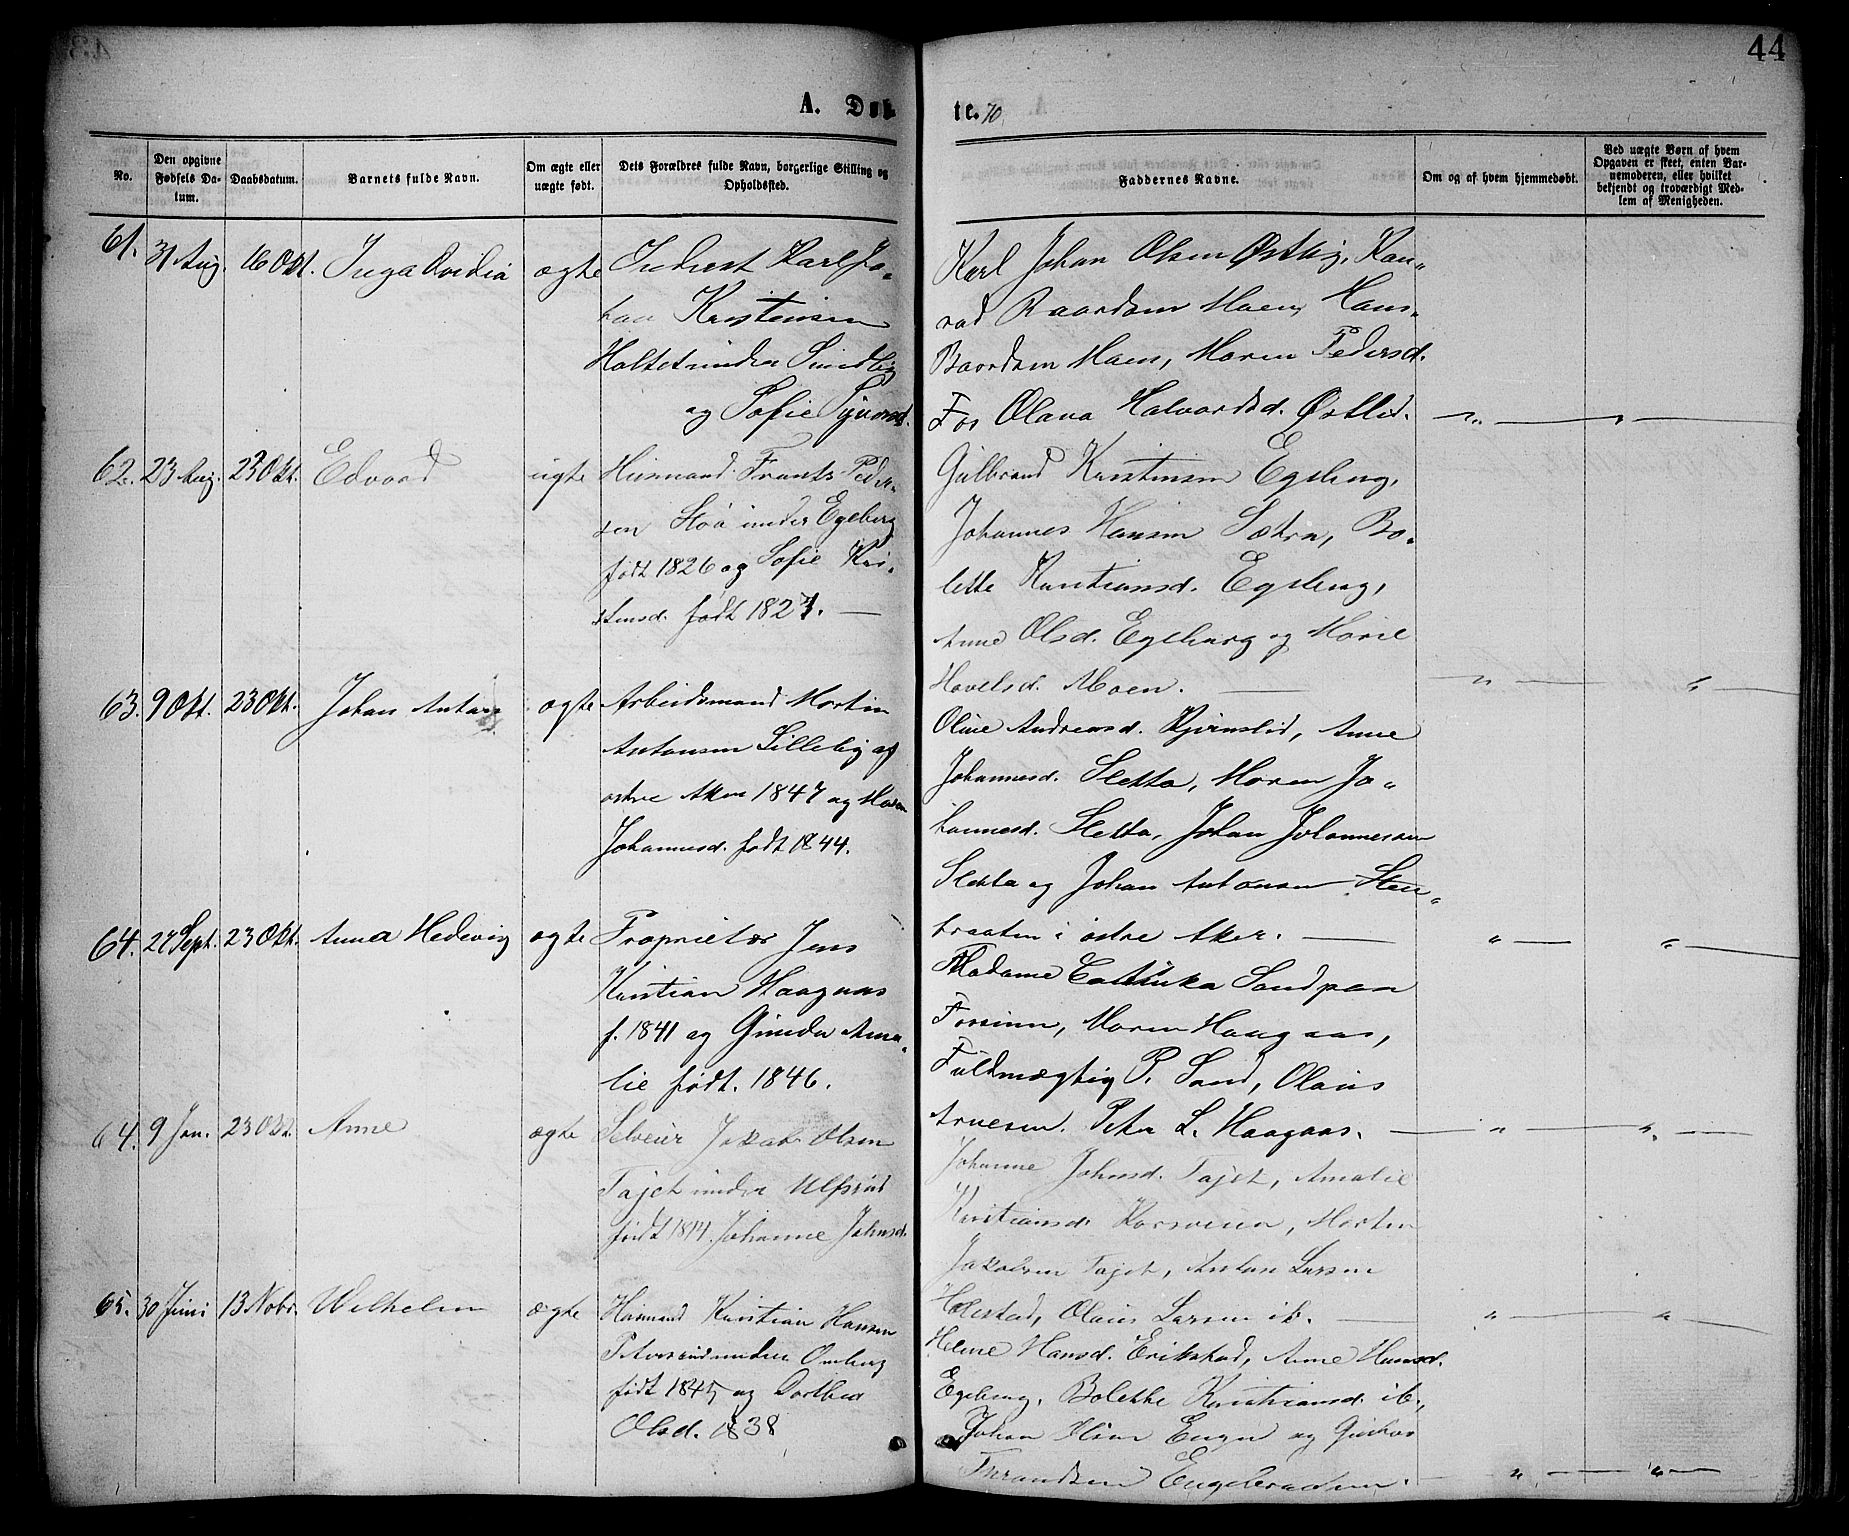 44
A. Døb
te. 70
No.
Den opgivne Fødsels Datum.
Daabsdatum.
Barnets fulde Navn.
Om ægte eller uægte født.
Dets Forældres fulde Navn, borgerlige Stilling og Opholdssted.
Faddernes Navne.
Om og af hvem hjemmedøbt.
Ved uægte Børn af hvem Opgaven er skeet, enten Barnemoderen, eller hvilket bekjendt og troværdigt Medlem af Menigheden.
61. 31 Aug. 16 Okt. Inga ægte
Inderst Karl Jo-
han Kristensen
Holtet under
og Sofie
Karl Johan Olsen Østby, Kon-
rad Baardsen Moen, Hans
Baardsen Moen, Maren Pedersd.
Fos Olava Halvorsd.
62. 23 Aug. 23 Okt. Edvard ægte
Husmand Frants Peder-
sen Stoa under Egeberg
født 1826 og Sofie Kri-
stensd. født 1827. —
Gulbrand Kristensen Egeberg,
Johannes Hansen Sætra, Bo-
lette Kristiansd. Egeberg,
Anne Olsd. Egeberg og Marie
Hovelsd. Moen. —
63. 9 Okt. 23 Okt. Johan Anton ægte
Arbeidsmand Martin
Antonsen Lilleby af
østre Aker 1847 og Maren
Johannesd. født 1844.
Oline Andreasd. Kjernslid, Anne
Johannesd. Sletta, Maren Jo-
hannesd. Sletta, Johan Johannesen
Sletta og Johan Antonsen Sten-
braaten i østre Aker. —
64. 27 Sept. 23 Okt. Anna Hedevig ægte
Proprietær Jens
Kristian Haagaas
f. 1841 og Gunda Ama-
lie født. 1846.
Madame Sand paa
Maren Haagaas,
Fuldmægtig P. Sand, Olaus
Arnesen. Peter L. Haagaas. —
64. 9 Jan. 23 Okt. Anne ægte
Selveier Jakob Olsen
Tajet under Ulfsrud
født 1814. Johanne Johnsd.
Johanne Johnsd. Tajet, Amalie
Kristiansd. Korsveien, Morten
Jakobsen Tajet, Anton Larsen
Holestad, Olaus Larsen ib. —
65. 30 Juni 13 Nobr. Wilhelm ægte
Husmand Kristian Hansen
Petersrud under Omberg
født 1845 og Dorthea
Olsd. 1838
Helene Hansd. Erikstad, Anne Hansd.
Egeberg, Bolette Kristiansd. ib.,
Johan Olsen Enger og
Engebraaten.